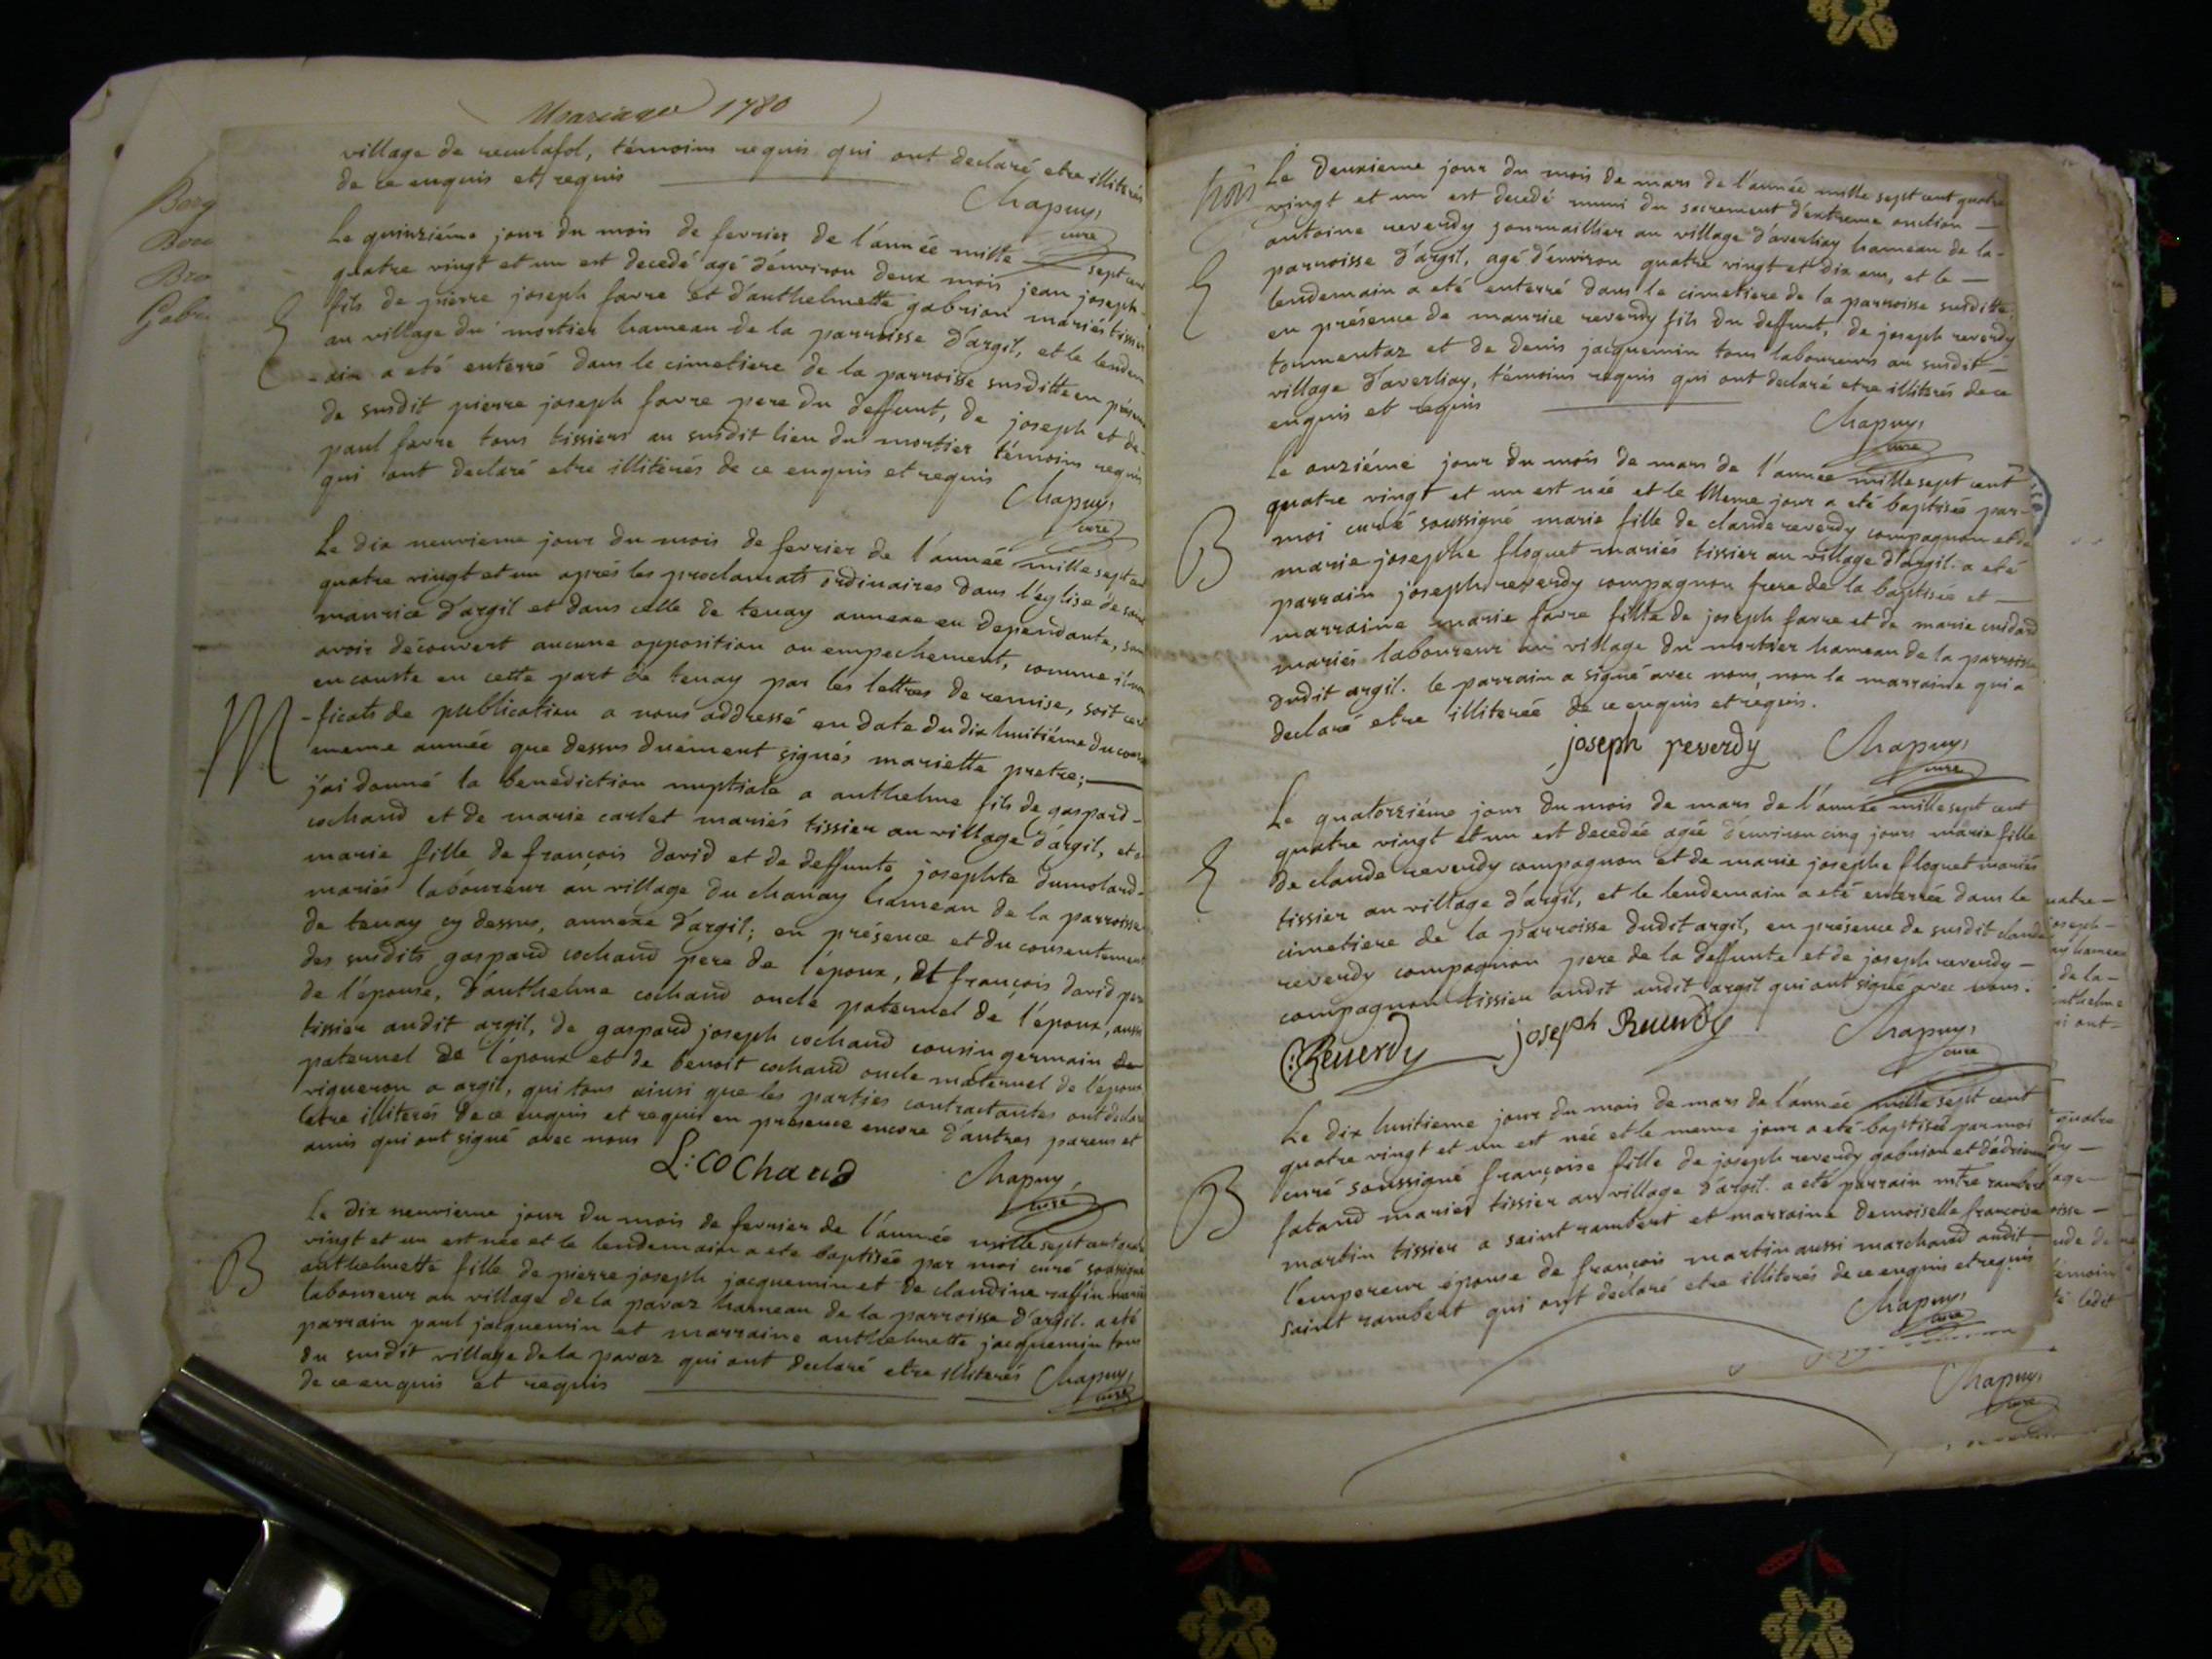 Mariage 1780
Borg
Gabri
village de reculafol, témoins requis qui ont declaré etre illiterés
de ce enquis et requis
Chapuy,
curé
Le quinziéme jour du mois de fevrier de l'année mille sept cent
quatre vingt et un est decedé agé d'environ deux mois jean joseph
fils de pierre joseph favre et d'anthelmette gabrion mariés tissier
au village du mortier hameau de la parroisse d'argil, et le lendem
-ain a eté enterré dans le cimetiere de la parroisse susditte en présen
de susdit pierre joseph favre pere du deffunt, de joseph et de
paul favre tous tissiers au susdit lieu du mortier témoins requis
qui ont declaré etre illiterés de ce enquis et requis
Chapuy,
curé
M
Le dix neuvieme jour du mois de fevrier de l'année mille sept cent
quatre vingt et un aprés les proclamats ordinaires dans l'eglise de saint
maurice d'argil et dans celle de tenay annexe en dependante, sans
avoir découvert aucune opposition ou empechement, comme il
en conste en cette part de tenay par les lettres de remise, soit cer
-ficats de publication a nous addressé en date du dix huitiéme du cour
meme année que dessus duëment signés mariette pretre;
j'ai donné la benediction nuptiale a anthelme fils de gaspard
cochand et de marie carlet mariés tissier au village d'argil, et
marie fille de françois david et de deffunte josephte dumolard
mariés laboureur au village du chanay hameau de la parroisse
de tenay cy dessus, annexe d'argil; en présence et du consentement
des susdits gaspard cochand pere de l'époux, et françois david per
de l'épouse, d'anthelme cochand oncle paternel de l'époux, aussi
tissier audit argil, de gaspard joseph cochand cousin germain
paternel de l'époux et de benoit cochand oncle maternel de l'epoux
vigneron a argil, qui tous ainsi que les parties contractantes ont declaré
etre illiterés de ce enquis et requis en présence encore d'autres parens et
amis qui ont signé avec nous
L: COchaud
Chapuy,
curé
B
Le dix neuvieme jour du mois de fevrier de l'année mille sept cent quatre
vingt et un est née et le lendemain a ete baptisée par moi curé soussigné
anthelmette fille de pierre joseph jacquemin et de claudine raffin mariés
laboureur au village de la pavaz hameau de la parroisse d'argil. a eté
parrain paul jacquemin et marraine anthelmette jacquemin tous
du susdit village de la pavaz qui ont declaré etre illiterés
de ce enquis et requis
Chapuy,
curé
Le deuxieme jour du mois de mars de l'année mille sept cent quatre
vingt et un est decedé muni du sacrement d'extreme onction
antoine reverdy journaillier au village d'averliaz hameau de la
parroisse d'argil, agé d'environ quatre vingt et dix ans, et le
lendemain a eté enterré dans le cimetiere de la parroisse susditte,
en présence de maurice reverdy fils du deffunt, de joseph reverdy
tormentaz et de denis jacquemin tous laboureurs au susdit
village d'averliaz, témoins requis qui ont declaré etre illiterés de ce
enquis et requis
Chapuy,
curé
B
Le onziéme jour du mois de mars de l'année mille sept cent
quatre vingt et un est née et le Meme jour a eté baptisée par
moi curé soussigné marie fille de claude reverdy compagnon et de
marie josephe floquet mariés tissier au village d'argil. a eté
parrain joseph reverdy compagnon frere de la baptisée et
marraine marie favre fille de joseph favre et de marie cuidard
mariés laboureur au village du mortier hameau de la parroisse
dudit argil. le parrain a signé avec nous, non la marraine qui a
declaré etre illiterée de ce enquis et requis.
joseph reverdy
Chapuy,
curé
Le quatorziéme jour du mois de mars de l'année mille sept cent
quatre vingt et un est decedée agée d'environ cinq jours marie fille
de claude reverdy compagnon et de marie josephe floquet mariés
tissier au village d'argil, et le lendemain a eté enterrée dans le
cimetiere de la parroisse dudit argil, en présence de susdit claude
reverdy compagnon pere de la deffunte et de joseph reverdy
compagnon tissier audit audit argil qui ont signé avec nous.
C: Reuerdy
joseph Reuerdy
Chapuy,
curé
B
Le dix huitieme jour du mois de mars de l'année mille sept cent
quatre vingt et un est née et le meme jour a eté baptisée par moi
curé soussigné françoise fille de joseph reverdy gabrion et d'adrienne
fataud mariés tissier au village d'argil. a eté parrain mtre rambert
martin tissier a saint rambert et marraine demoiselle françoise
l'empereur épouse de françois martin aussi marchand audit
saint rambert qui ont declaré etre illiterés de ce enquis et requis
Chapuy,
curé
Chapuy,
curé
uatre
joseph
hameau
de la
anthelme
qui ont
quatre
dy
age
oisse
témoins
ledit